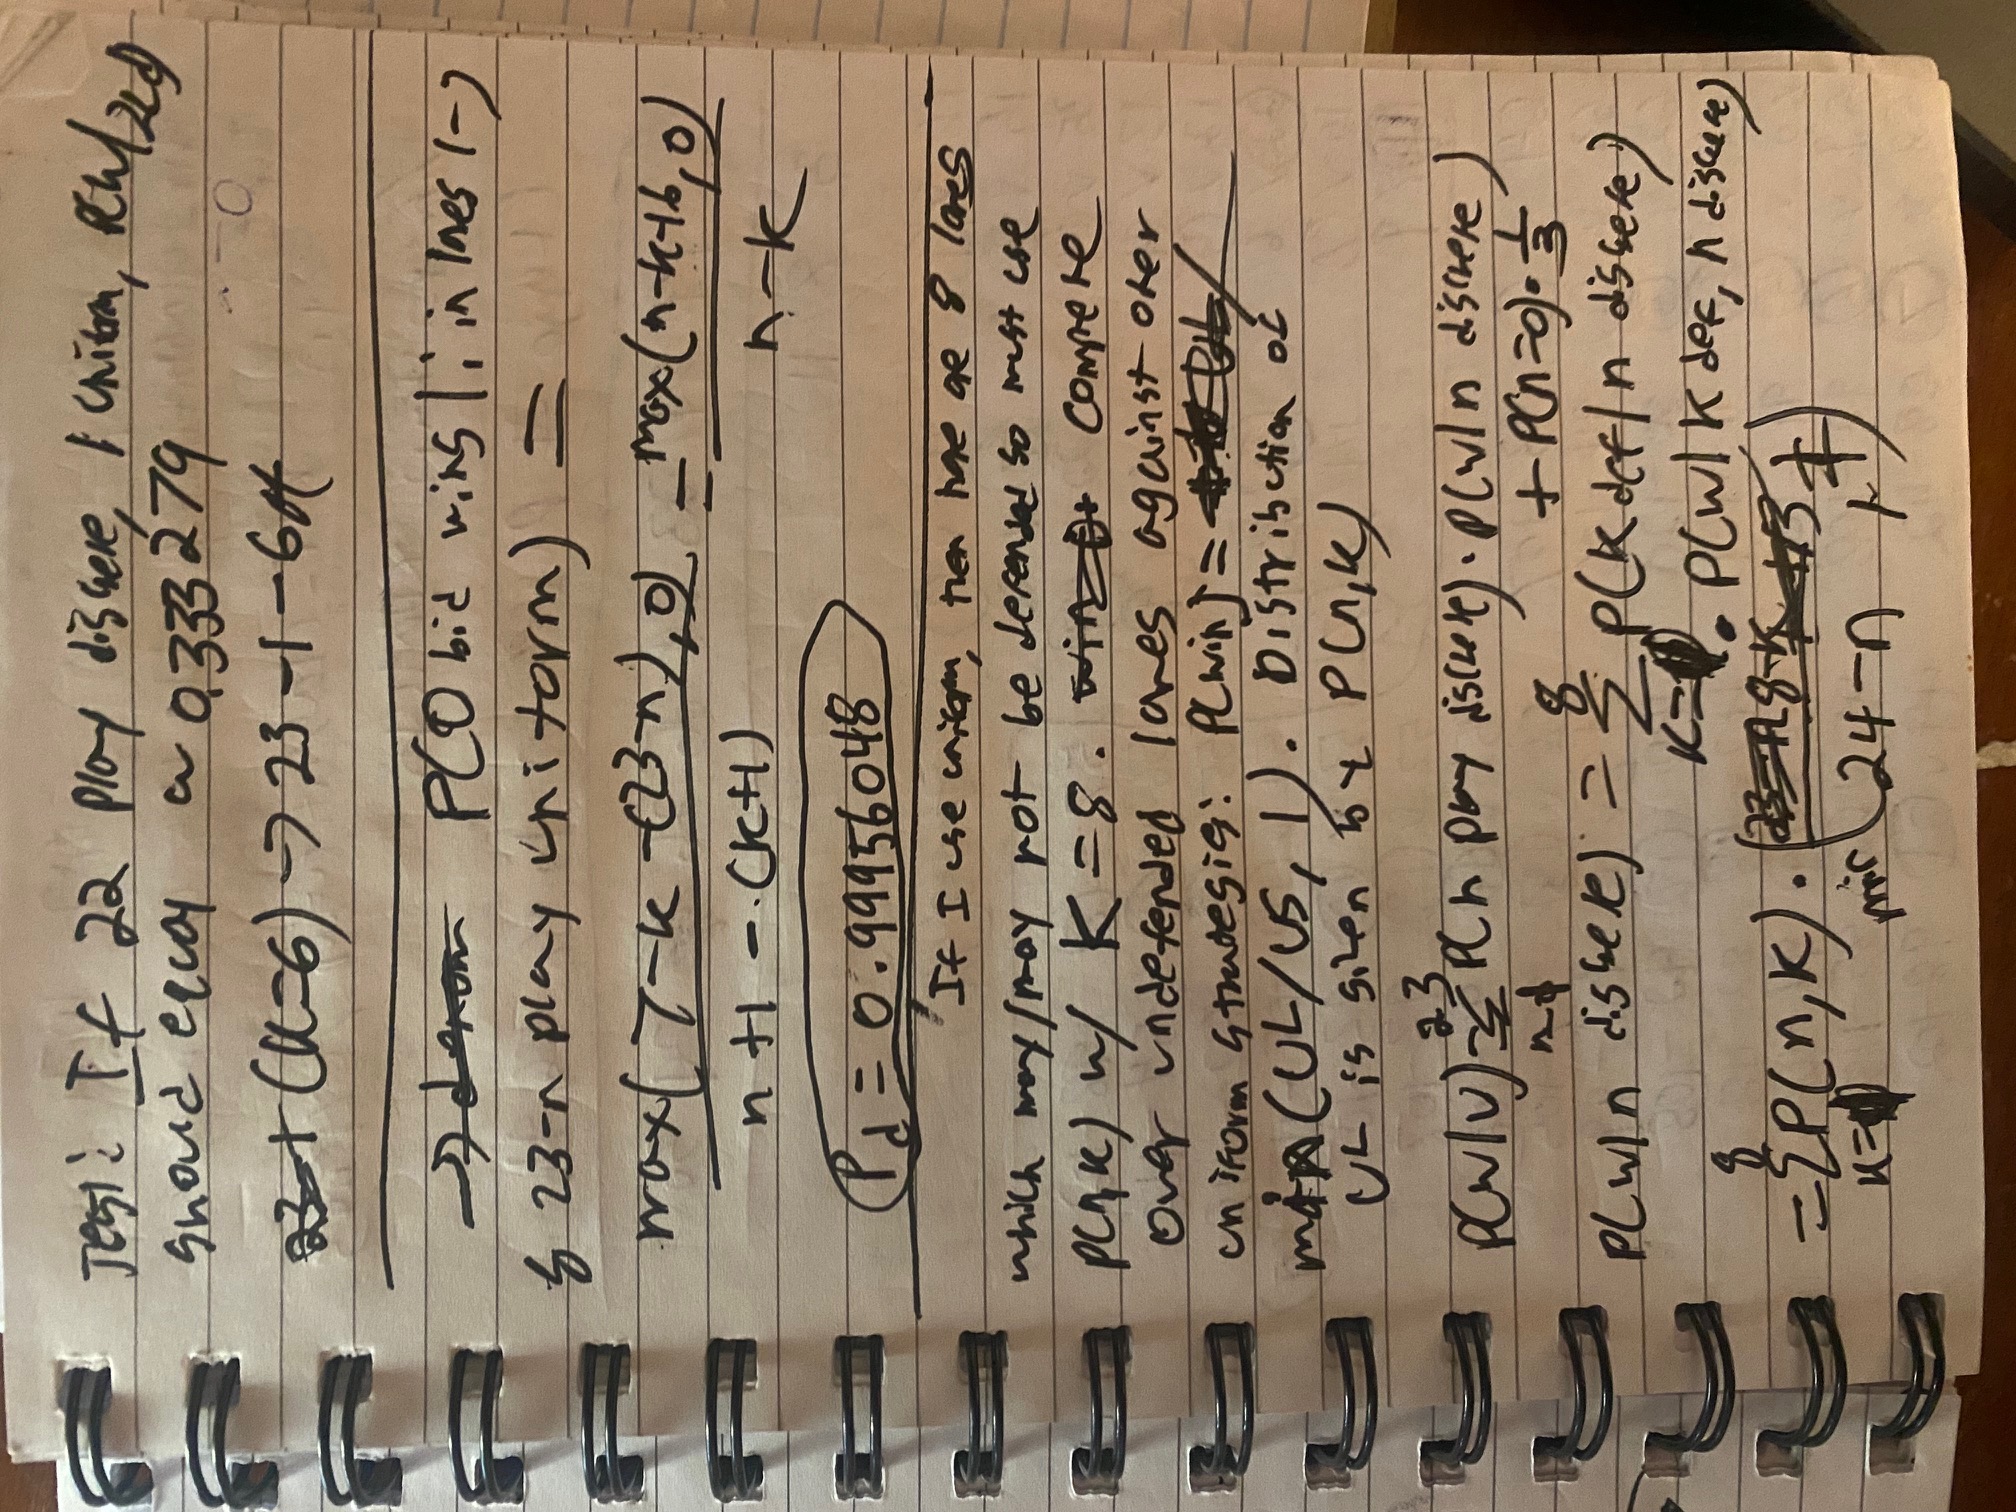 Test: If 22 play discrete, 1 uniform, P(W|22d)
should equal ~ 0.333279
23+ (k=6) → 23 - 1 - 6
P(0 bid wins | i in lanes 1-7
& 23-n play uniform) =
max(7-k-(23-n), 0) / n+1-(k+1) = max(n-k-16, 0) / n-k
Pd = 0.99956048
If I use uniform, then there are 8 lanes
which may/may not be defended so must use
P(n,k) w/ K=8. compete
over undefended lanes against other
uniform strategies: P[win] =
min(UL/US, 1). Distribution of
UL is given by P(n,k)
P(W|U) = 23 Σ n=1 P(n play discrete) · P(W|n discrete)
+ P(n=0) · 1/3
P(W|n discrete) = 8 Σ k= P(k def|n discrete)
· P(W|k def, n discrete)
= 8 Σ k= P(n,k) · min(8-k / 24-n, 1)